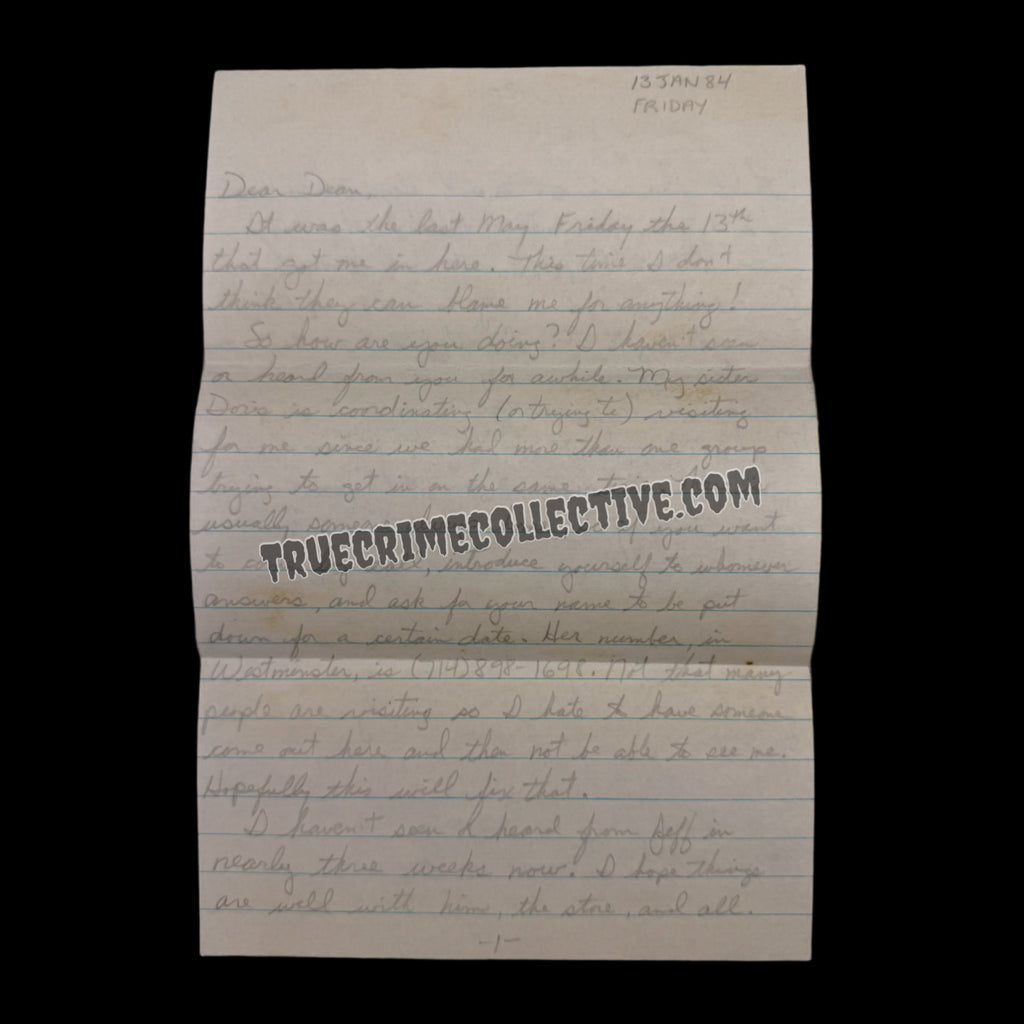 13 JAN 84
FRIDAY
Dear Dean,
It was the last May Friday the 13th
that got me in here. This time I don't
think they can blame me for anything!
So how are you doing? I haven't seen
or heard from you for awhile. My sister
Doris is coordinating (or trying to) visiting
for me since we had more than one group
trying to get in on the same
usually if you want
to introduce yourself to whomever
answers, and ask for your name to be put
down for a certain date. Her number, in
Westminster, is (714) 898-1698. Not that many
people are visiting so I hate to have someone
come out here and then not be able to see me.
Hopefully this will fix that.
I haven't seen or heard from Jeff in
nearly three weeks now. I hope things
are well with him, the store, and all.
-1-
TRUECRIMECOLLECTIVE.COM